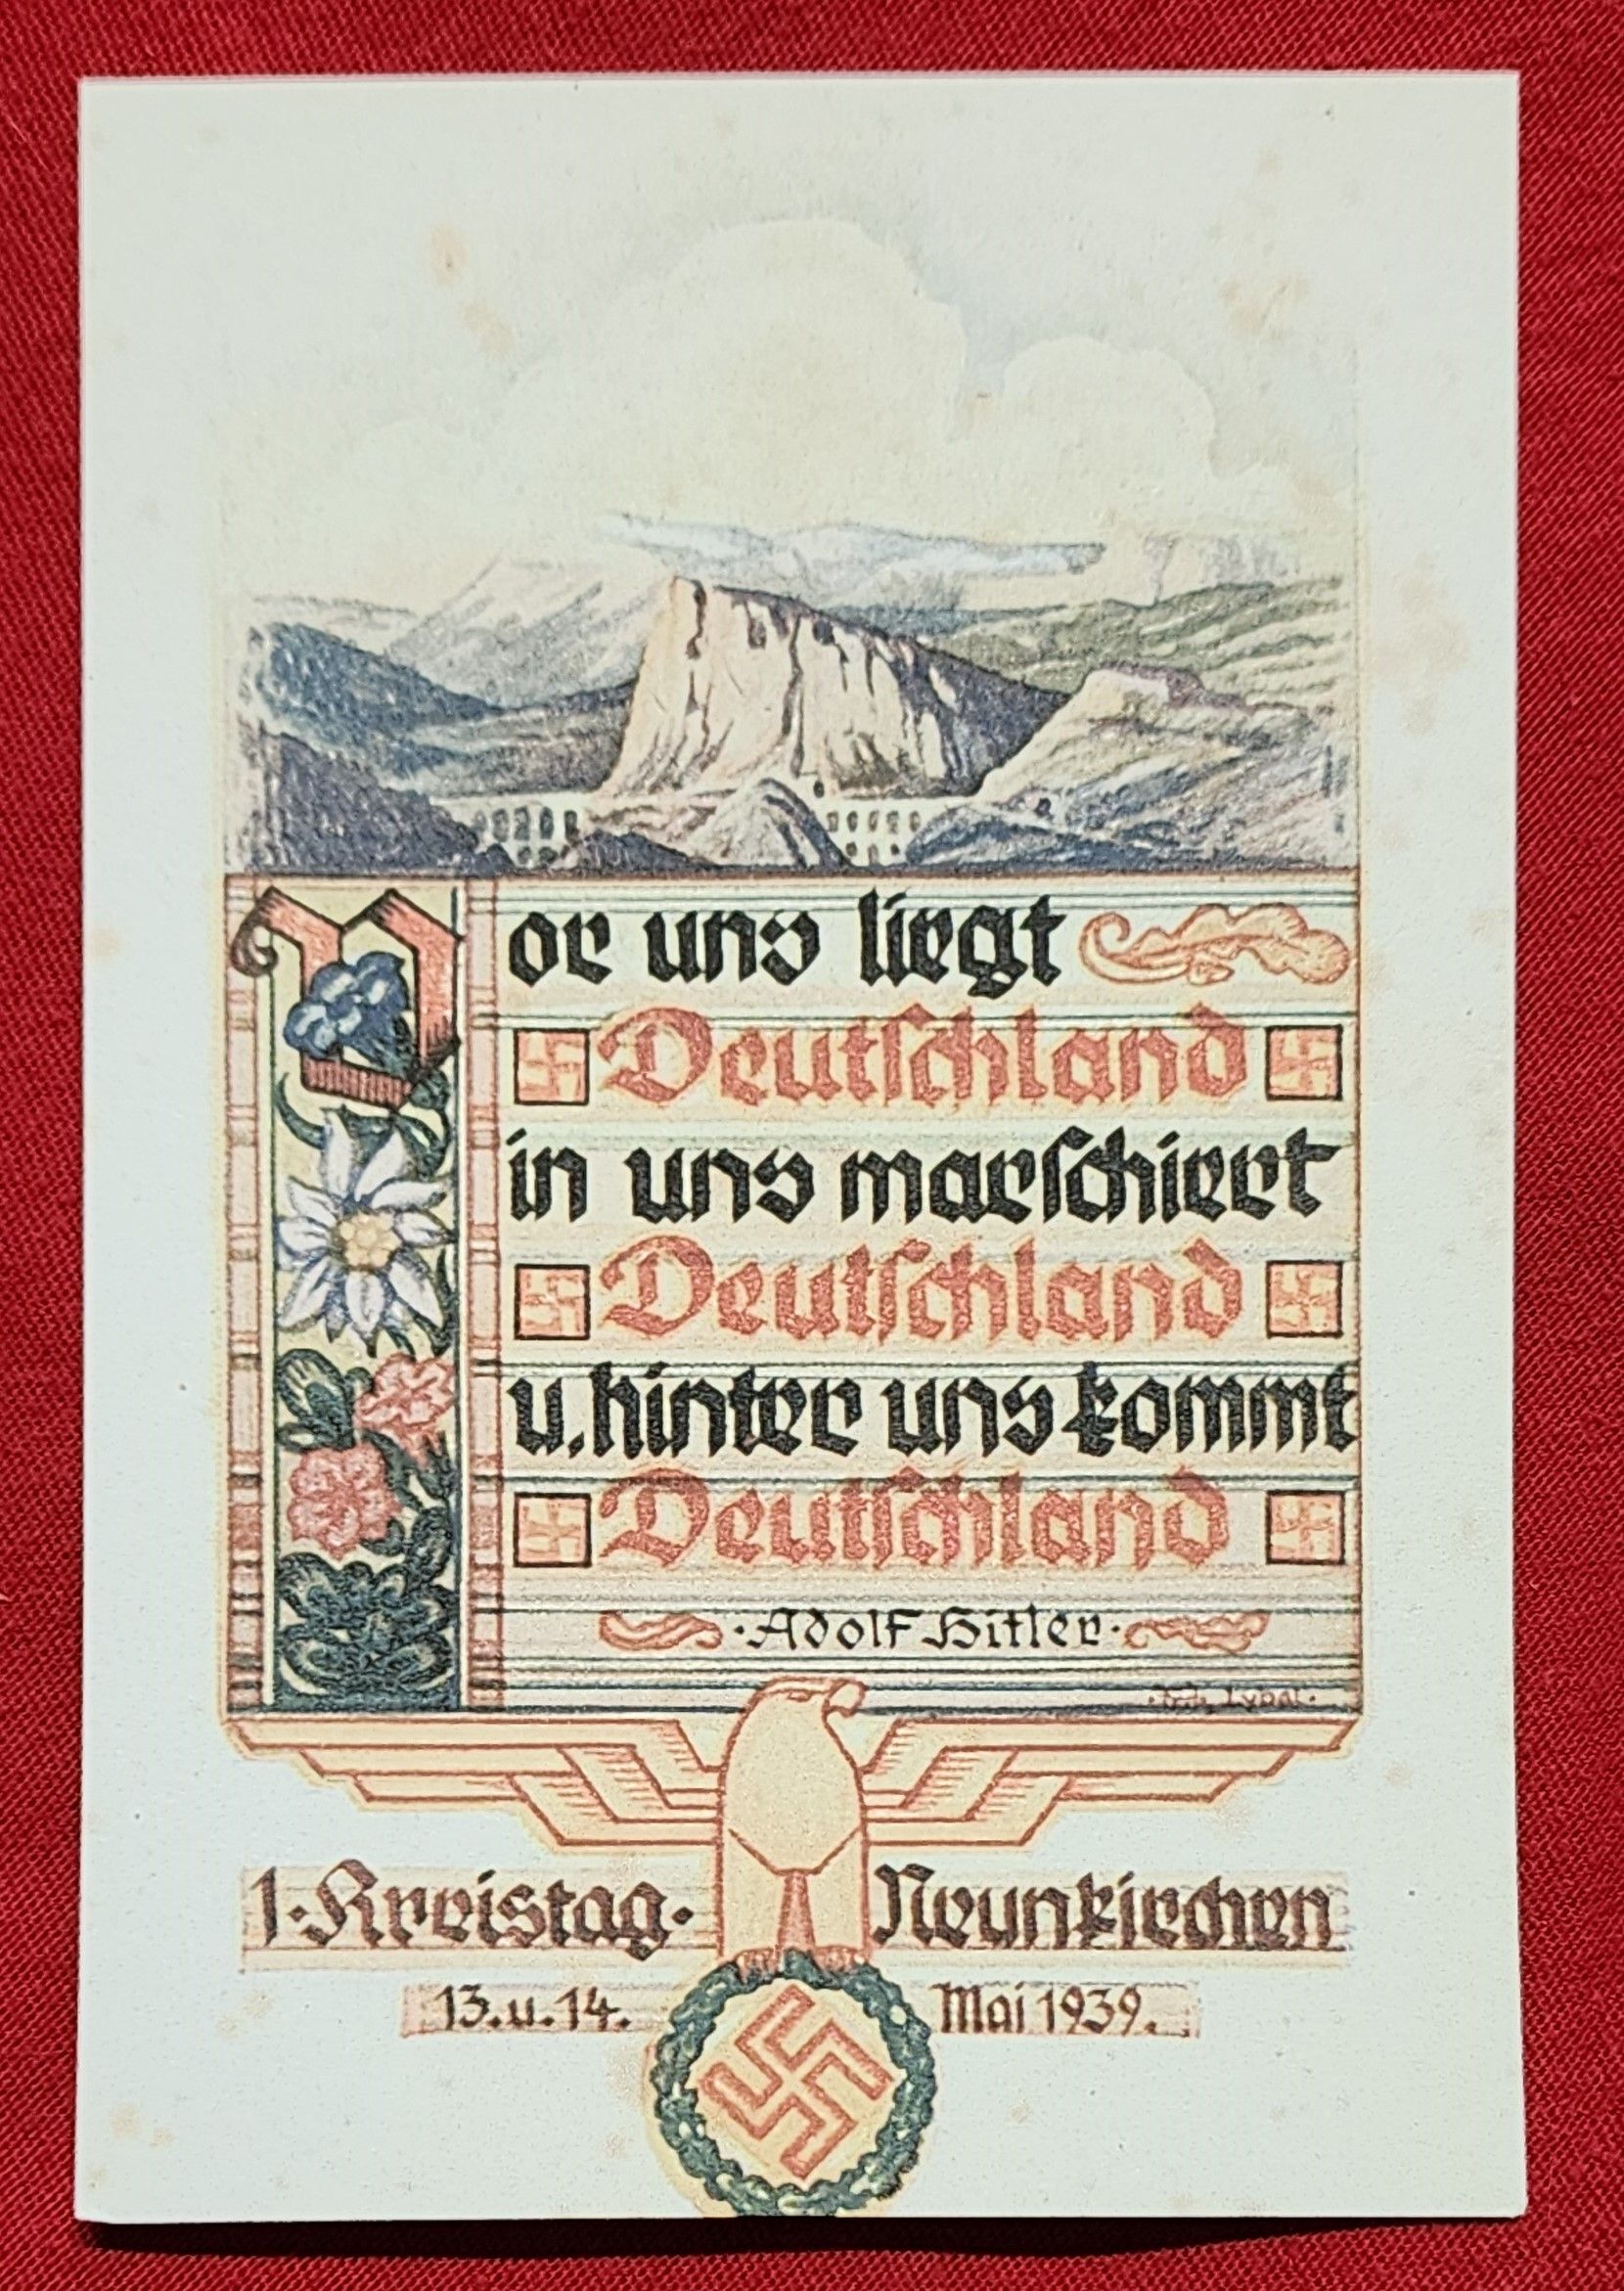 Vor uns liegt
Deutschland
in uns marschiert
Deutschland
u. hinter uns kommt
Deutschland
· Adolf Hitler ·
1. Kreistag · Neunkirchen
13. u. 14. Mai 1939.